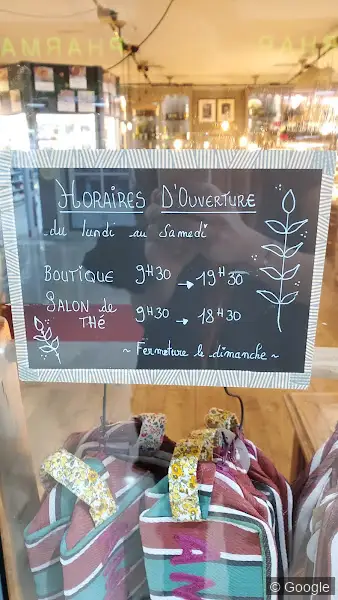 PHARMA
HORAIRES D'OUVERTURE
du lundi au samedi
BOUTIQUE 9H30 → 19H30
SALON de THÉ 9H30 → 18H30
~ Fermeture le dimanche ~
AM
© Google